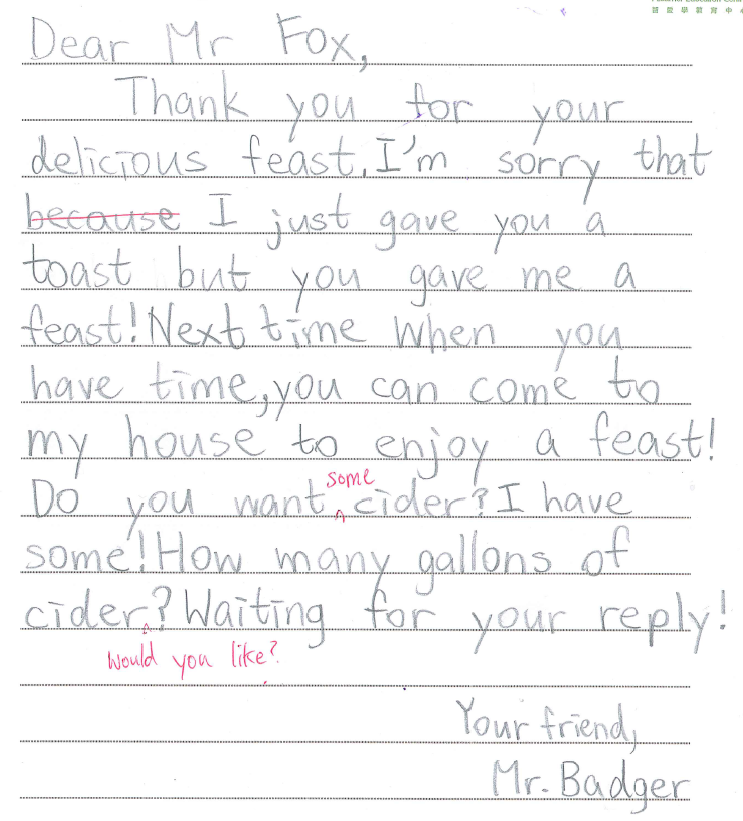 普 能 學 教 育 中 心
Dear Mr Fox,
Thank you for your
delicious feast. I'm sorry that
because I just gave you a
toast but you gave me a
feast! Next time when you
have time, you can come to
my house to enjoy a feast!
some
Do you want cider? I have
some! How many gallons of
cider? Waiting for your reply!
would you like?
Your friend,
Mr. Badger